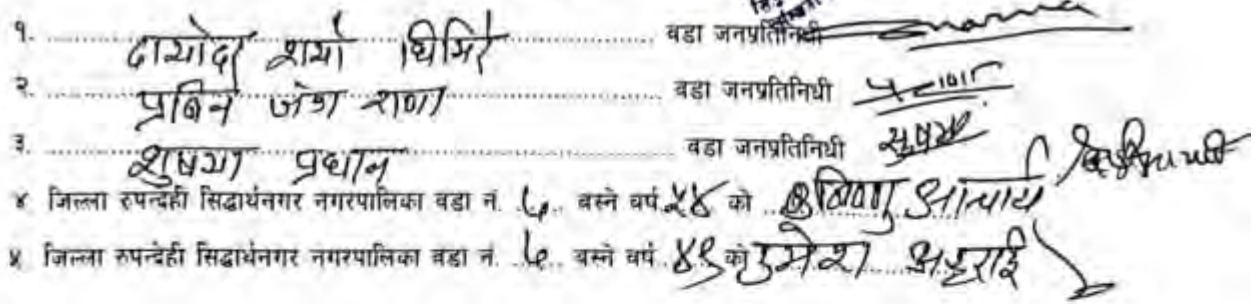 १. दामोदर शर्मा घिमिरे वडा जनप्रतिनिधी
२. प्रबिन जंग राणा वडा जनप्रतिनिधी
३. शुषमा प्रधान वडा जनप्रतिनिधी सुषमा
४ जिल्ला रुपन्देही सिद्धार्थनगर नगरपालिका वडा नं. ७ बस्ने वर्ष ५४ को विष्णु आचार्य
५ जिल्ला रुपन्देही सिद्धार्थनगर नगरपालिका वडा नं. ७ बस्ने वर्ष ४९ को उमेश भट्टराई